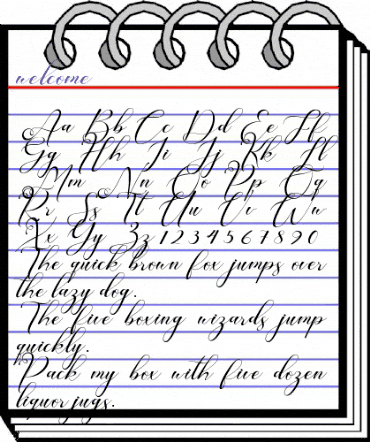 welcome
Aa Bb Cc Dd Ee Ff
Gg Hh Ii Jj Kk Ll
Mm Nn Oo Pp Qq
Rr Ss Tt Uu Vv Ww
Xx Yy Zz 1 2 3 4 5 6 7 8 9 0
The quick brown fox jumps over
the lazy dog.
The five boxing wizards jump
quickly.
"Pack my box with five dozen
liquor jugs.